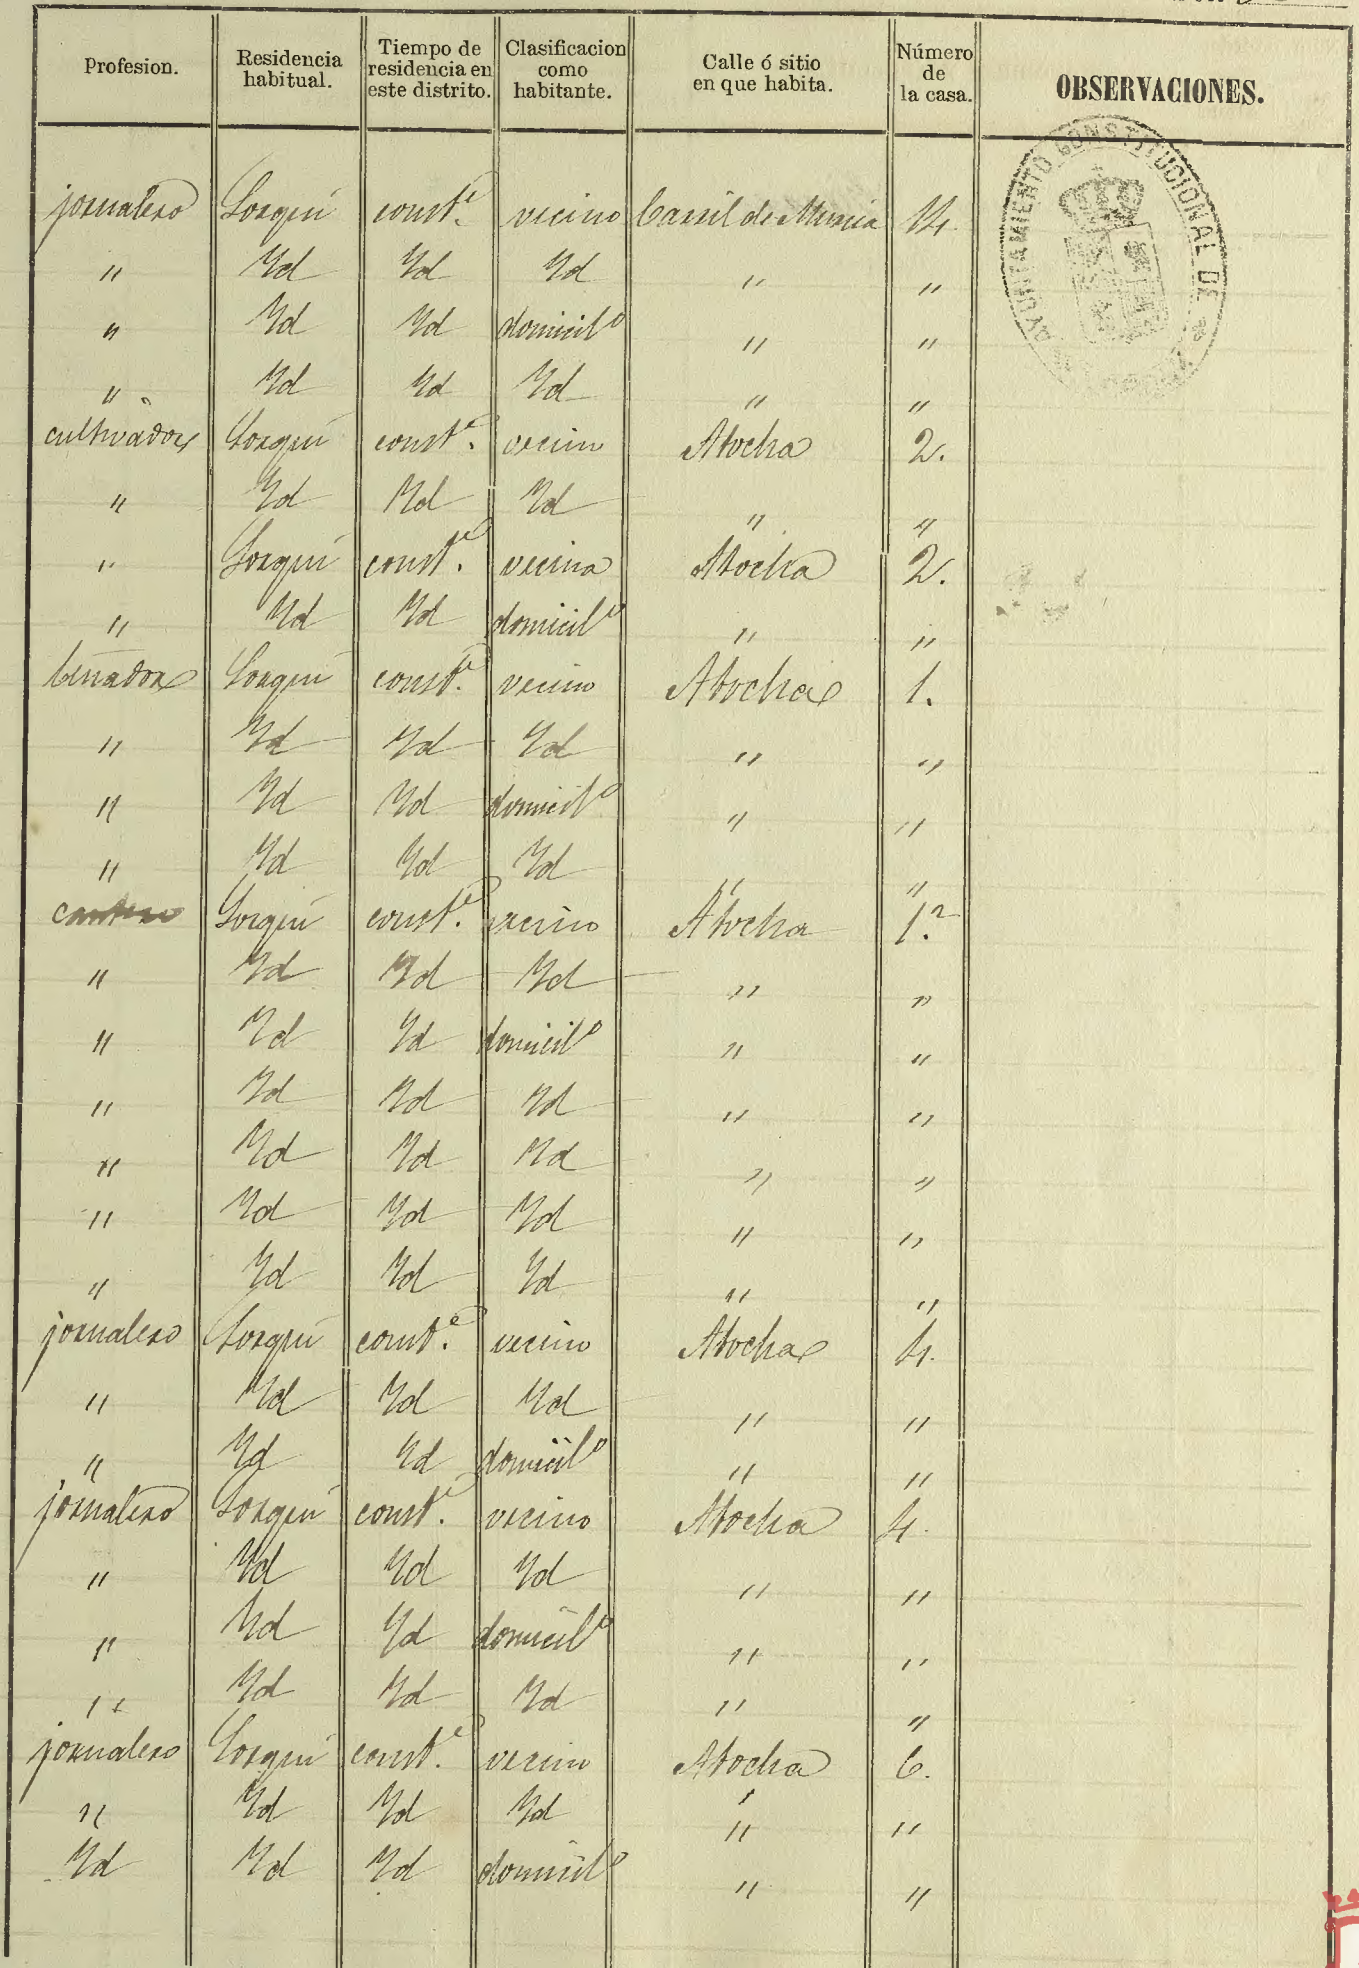 Profesion. | Residencia habitual. | Tiempo de residencia en este distrito. | Clasificacion como habitante. | Calle ó sitio en que habita. | Número de la casa. | OBSERVACIONES.
AYUNTAMIENTO CONSTITUCIONAL DE
jornalero | Lorquí | const.e | vecino | Carril de Murcia | 14.
" | Yd | Yd | Yd | " | "
" | Yd | Yd | domicil.o | " | "
" | Yd | Yd | Yd | " | "
cultivador | Lorquí | const.e | vecino | Atocha | 2.
" | Yd | Yd | Yd | " | "
" | Lorquí | const.e | vecina | Atocha | 2.
" | Yd | Yd | domicil.o | " | "
Lorquí | const.e | vecino | Atocha | 1.
" | Yd | Yd | Yd | " | "
" | Yd | Yd | domicil.o | " | "
" | Yd | Yd | Yd | " | "
Lorquí | const.e | vecino | Atocha | 1.
" | Yd | Yd | Yd | " | "
" | Yd | Yd | domicil.o | " | "
" | Yd | Yd | Yd | " | "
" | Yd | Yd | Yd | " | "
" | Yd | Yd | Yd | " | "
" | Yd | Yd | Yd | " | "
jornalero | Lorquí | const.e | vecino | Atocha | 4.
" | Yd | Yd | Yd | " | "
" | Yd | Yd | domicil.o | " | "
jornalero | Lorquí | const.e | vecino | Atocha | 4.
" | Yd | Yd | Yd | " | "
" | Yd | Yd | domicil.o | " | "
" | Yd | Yd | Yd | " | "
jornalero | Lorquí | const.e | vecino | Atocha | 6.
" | Yd | Yd | Yd | " | "
Yd | Yd | Yd | domicil.o | " | "